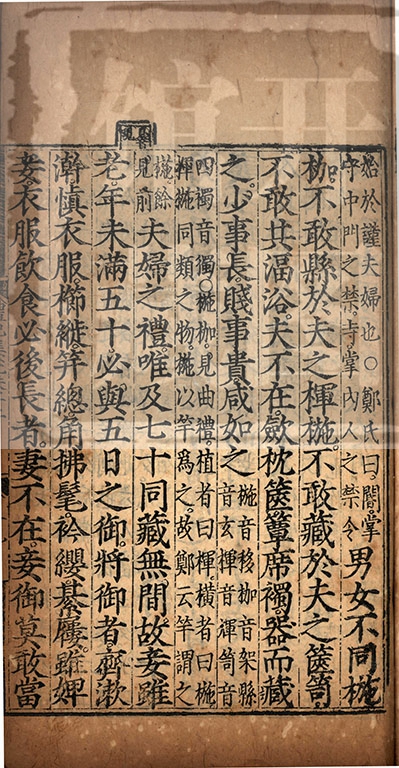 始於謹夫婦也○鄭氏曰閽掌
守中門之禁寺掌內人之禁令
男女不同椸
枷不敢縣於夫之楎椸不敢藏於夫之篋笥
不敢共湢浴夫不在斂枕篋簟席襡器而藏
之少事長賤事貴咸如之
椸音移枷音架縣
音玄楎音運笥音
四襡音獨○椸枷見曲禮植者曰楎橫者曰椸
楎椸同類之物椸以竿爲之故鄭云竿謂之
椸餘
見前
夫婦之禮唯及七十同藏無間故妾雖
老年未滿五十必與五日之御將御者齊漱
澣慎衣服櫛縰笄總角拂髦衿纓綦屨雖婢
妾衣服飲食必後長者妻不在妾御莫敢當